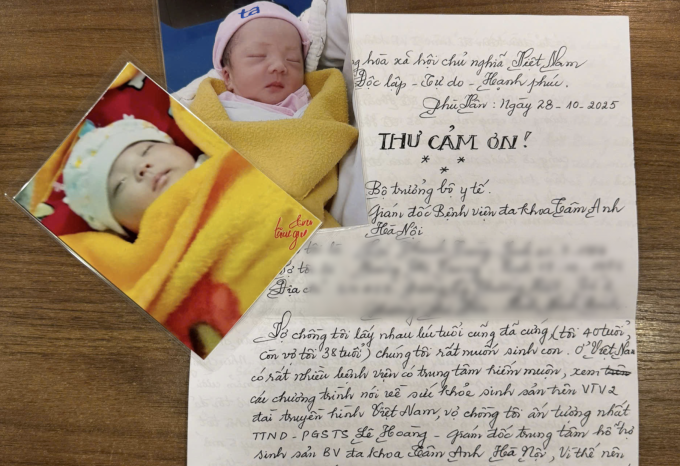 ta
ng hòa xã hội chủ nghĩa Việt Nam
Độc lập - Tự do - Hạnh phúc.
Phú Vân: Ngày 28-10-2025
THƯ CẢM ƠN!
* * *
Bộ trưởng bộ y tế.
Giám đốc Bệnh viện đa khoa Tâm Anh
Hà Nội
Địa c
Vợ chồng tôi lấy nhau lúc tuổi cũng đã cứng (tôi 40 tuổi,
còn vợ tôi 38 tuổi) chúng tôi rất muốn sinh con. Ở Việt Na
có rất nhiều bệnh viện có trung tâm hiếm muộn, xem
các chương trình nói về sức khỏe sinh sản trên VTV2
đài truyền hình Việt Nam, vợ chồng tôi ấn tượng nhất
TTND - PGSTS Lê Hoàng - giám đốc trung tâm hỗ trợ
sinh sản BV đa khoa Tâm Anh Hà Nội, Vì thế nên